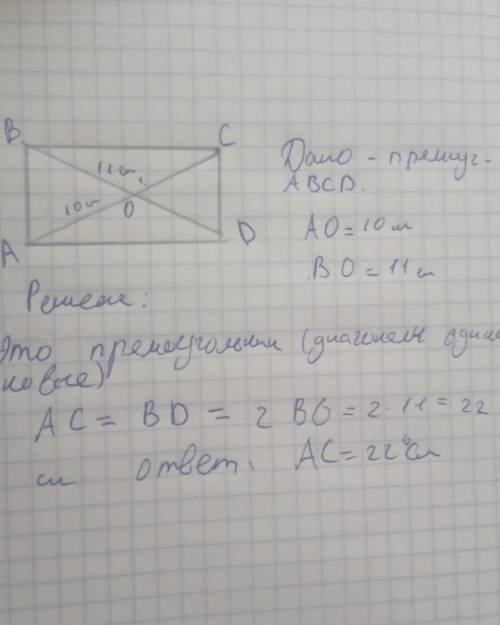 B
C
11 cm
10 cm
O
A
D
Дано - прямоуг-
ABCD.
AO = 10 см
BO = 11 см
Решение:
Это прямоугольник (диагонали одина
ковые)
AC = BD = 2 BO = 2·11 = 22
см ответ. AC = 22 см